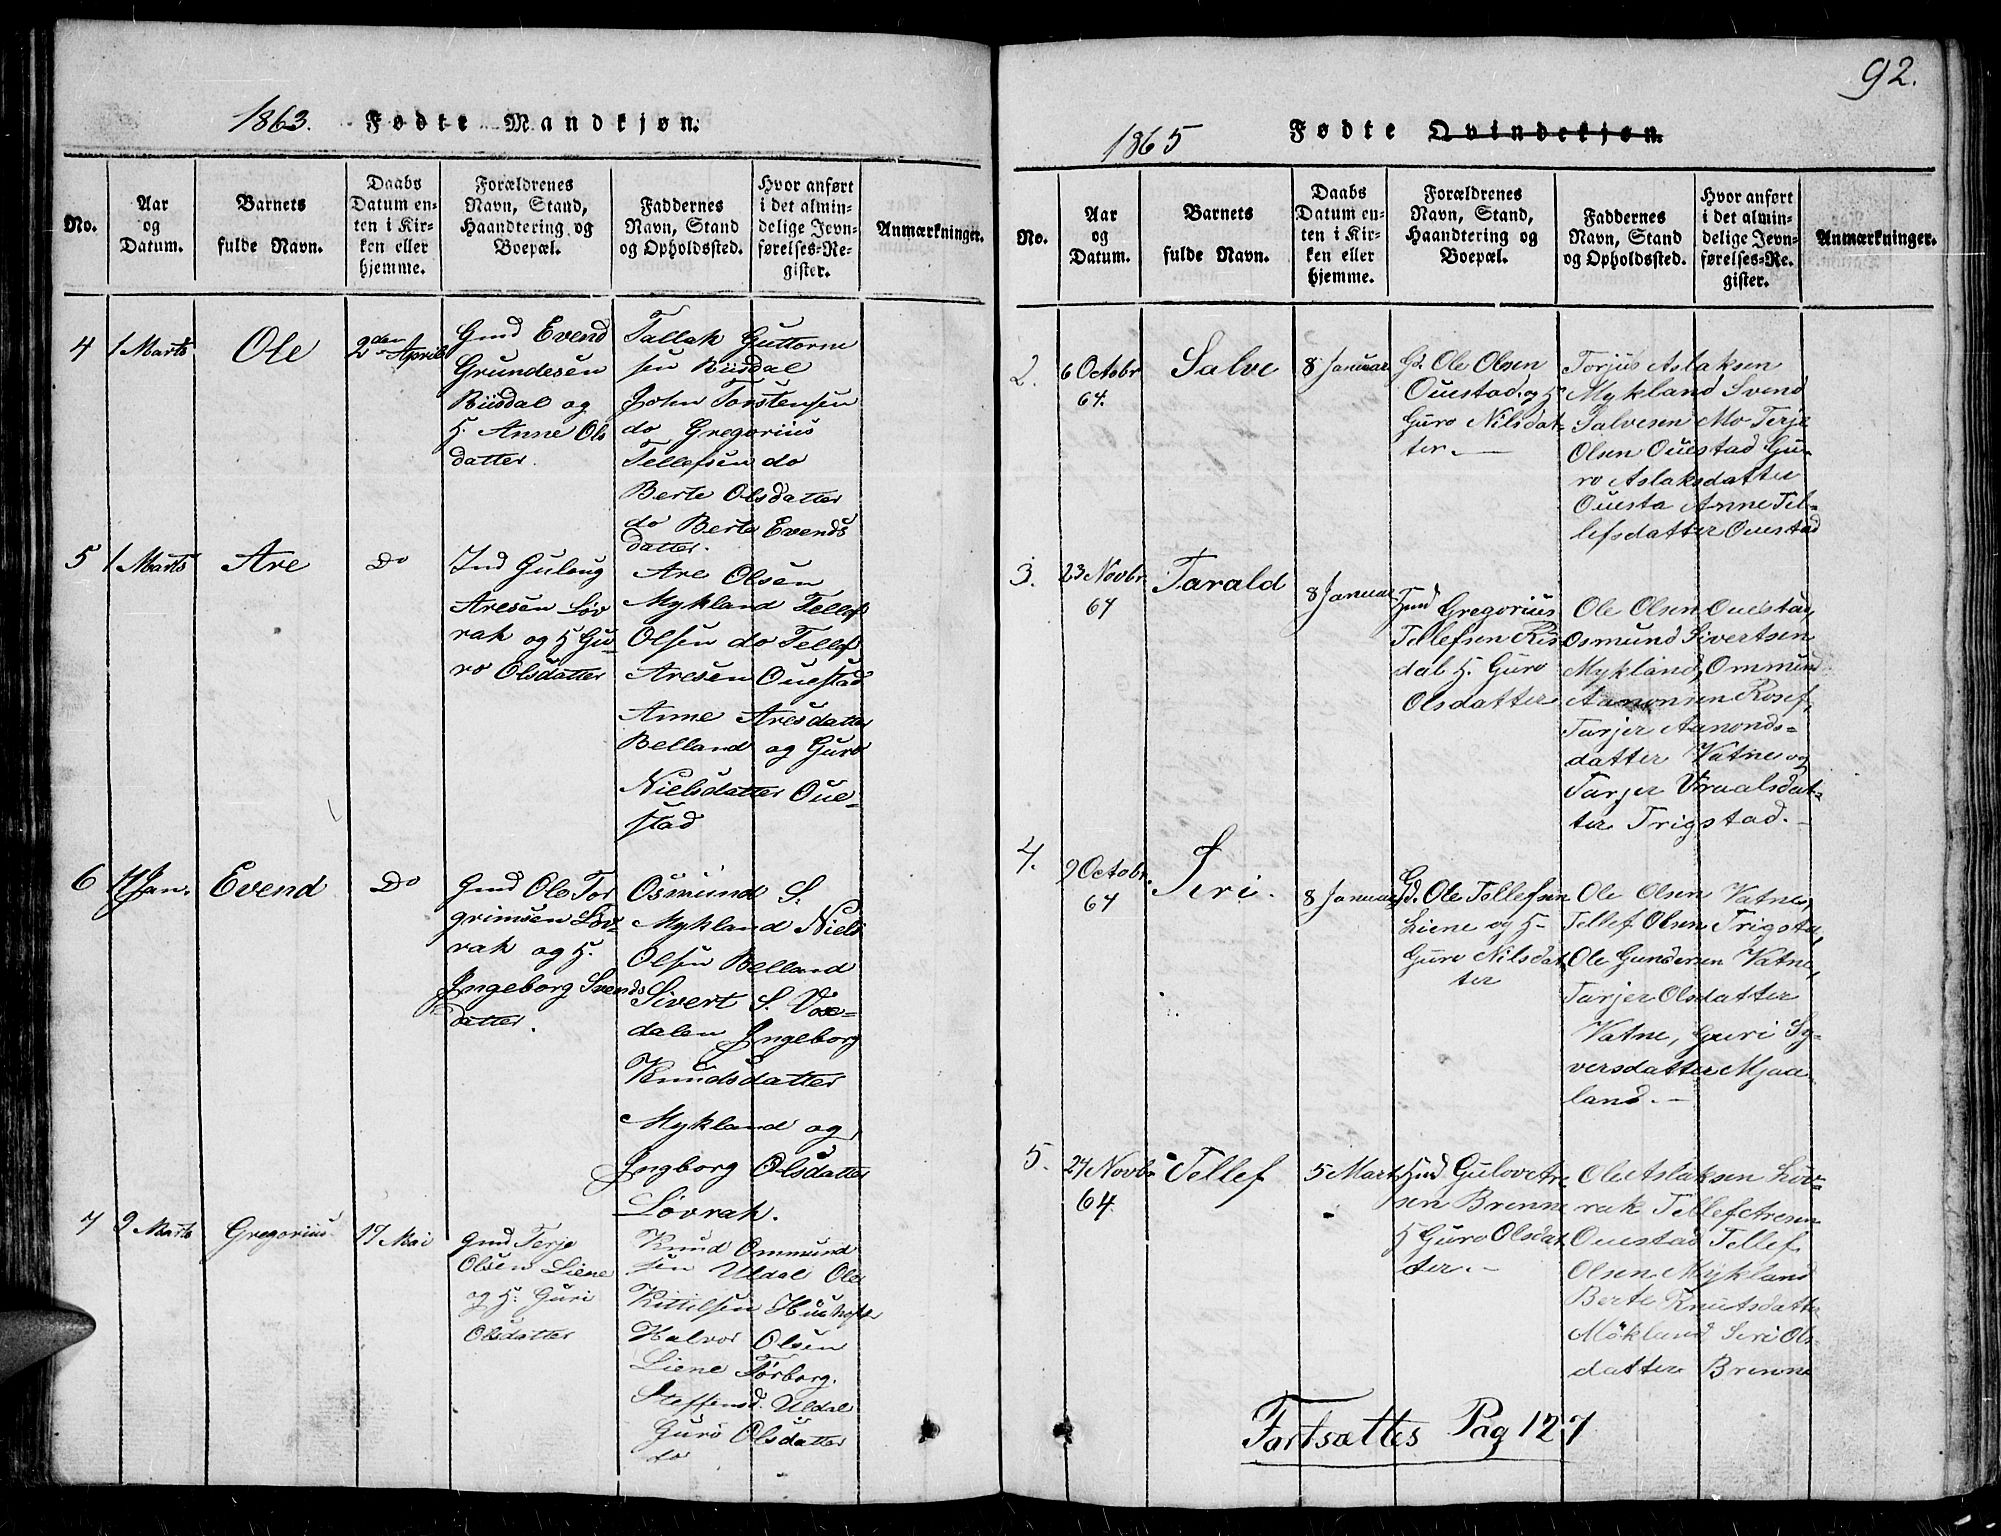 1863. Fødte Mandkjøn.
No.
Aar
og
Datum.
Barnets
fulde Navn.
Daabs
Datum en-
ten i Kir-
ken eller
hjemme.
Forældrenes
Navn, Stand,
Haandtering og
Boepæl.
Faddernes
Navn, Stand
og Opholdssted.
Hvor anført
i det almin-
delige Jevn-
førelses-Re-
gister.
Anmærkninger.
4
1 Marts
Ole
2den April
Gmd Evend
Grundesen
Risdal og
H. Anne Ols
datter.
Tallak Guttorm
sen Risdal
John Torstensen
do Gregorius
Tellefsen do
Berte Olsdatter
do Berte Evends
datter.
5
1 Marts
Are
Do
Ind Guloug
Aresen Løv
rak og H Gu-
ro Olsdatter
Are Olsen
Mykland Tellef
Olsen do Tellef
Aresen Ouestad
Anne Aresdatter
Belland og Guro
Nielsdatter Oue-
stad
6
Jan.
Evend
Do
Gmd Ole Tor
grimsen Løv
rak og H.
Ingeborg Svends
datter.
Osmund S.
Mykland Niels
Olsen Belland
Sivert S. Væ-
dalen Ingeborg
Knudsdatter
Mykland og
Ingborg Olsdatter
Løvrak.
7
9 Marts
Gregorius
17 Mai
Gmd Terje
Olsen Liene
og H. Guri
Olsdatter
Knud Ommund
sen Uldal Ole
Kittilsen
Halvor Olsen
Liene Tørborg.
Steffensd. Uldal
Guro Olsdatter
do
92.
1865 Fødte Qvindekjøn.
No.
Aar
og
Datum.
Barnets
fulde Navn.
Daabs
Datum en-
ten i Kir-
ken eller
hjemme.
Forældrenes
Navn, Stand,
Haandtering og
Boepæl.
Faddernes
Navn, Stand
og Opholdssted.
Hvor anført
i det almin-
delige Jevn-
førelses-Re-
gister.
Anmærkninger.
2.
6 Octobr
64.
Salve
8 Januar
Gd. Ole Olsen
Ouestad og H
Guro Nilsdat-
ter.
Torjus Aslaksen
Mykland Svend
Salvesen Mo Terje
Olsen Ouestad Gu-
ro Aslaksdatter
Ouesta Anne Tel-
lefsdatter Ouestad
3.
23 Novbr
64
Tarald
8 Januar
Hmd Gregorius
Tellefsen Ris-
dal H. Guro
Olsdatter
Ole Olsen Ouestad,
Osmund Sivertsen
Mykland, Ommund
Aanonsen Rosef,
Tarjer Aanonds-
datter Vatne og
Tarjer Vraalsdat-
ter Trigstad.
4.
9 Octobr.
64
Siri.
8 Januar
Gd. Ole Tellefsen
Liene og H-
Guro Nilsdat
ter
Ole Olsen Vatne,
Tellef Olsen Trigsta,
Ole Gundersen Vatne,
Tarjer Olsdatter
Vatne, Guri Sy-
versdatter Mjaa-
land.
5.
24 Novbr
64.
Tellef
5 Mart
Hmd Gulov Are-
sen Brenne
H Guro Olsdat
ter.
Ole Aslaksen Løv-
rak Tellef Aresen
Ouestad Tellef
Olsen Mykland
Berte Knutsdatter
Mökland Siri Ols-
datter Brenne
Fortsættes Pag 127